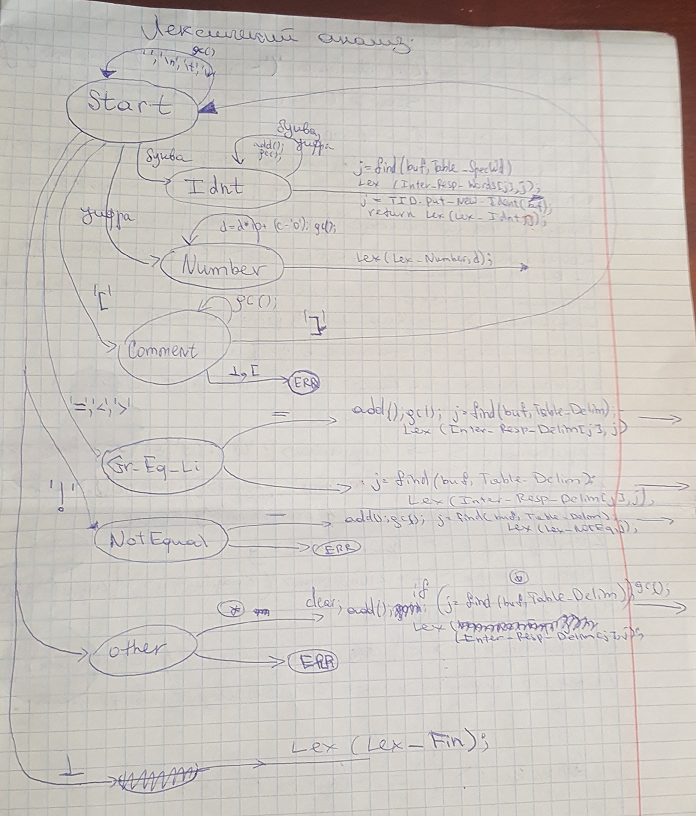 Лексический анализ:
gc()
' ', '\n', '\t',
Start
буква,
цифра
add();
gc();
буква
Idnt
j=find(buf, Table_SpecWd)
Lex (Inter_Resp_Words[j], j);
j = TID.Put_New_Ident(buf);
return Lex(Lex_Idnt, j);
цифра
d=d*10+(c-'0'); gc();
Number
Lex(Lex_Number, d);
'['
gc();
']'
Comment
⊥, [
ERR
'=','<','>'
=
add(); gc(); j=find(buf, Table_Delim);
Lex (Inter_Resp_Delim[j], j)
Gr_Eq_Li
j=find(buf, Table_Delim);
Lex(Inter_Resp_Delim[j], j);
'!'
=
add(); gc(); j=find(buf, Table_Delim);
Lex(Lex_NotEq, j);
NotEqual
ERR
*
*
clear; add(); if (j=find(buf, Table_Delim)) gc();
Lex
(Inter_Resp_Delim[j], j);
other
ERR
⊥
Lex (Lex_Fin);